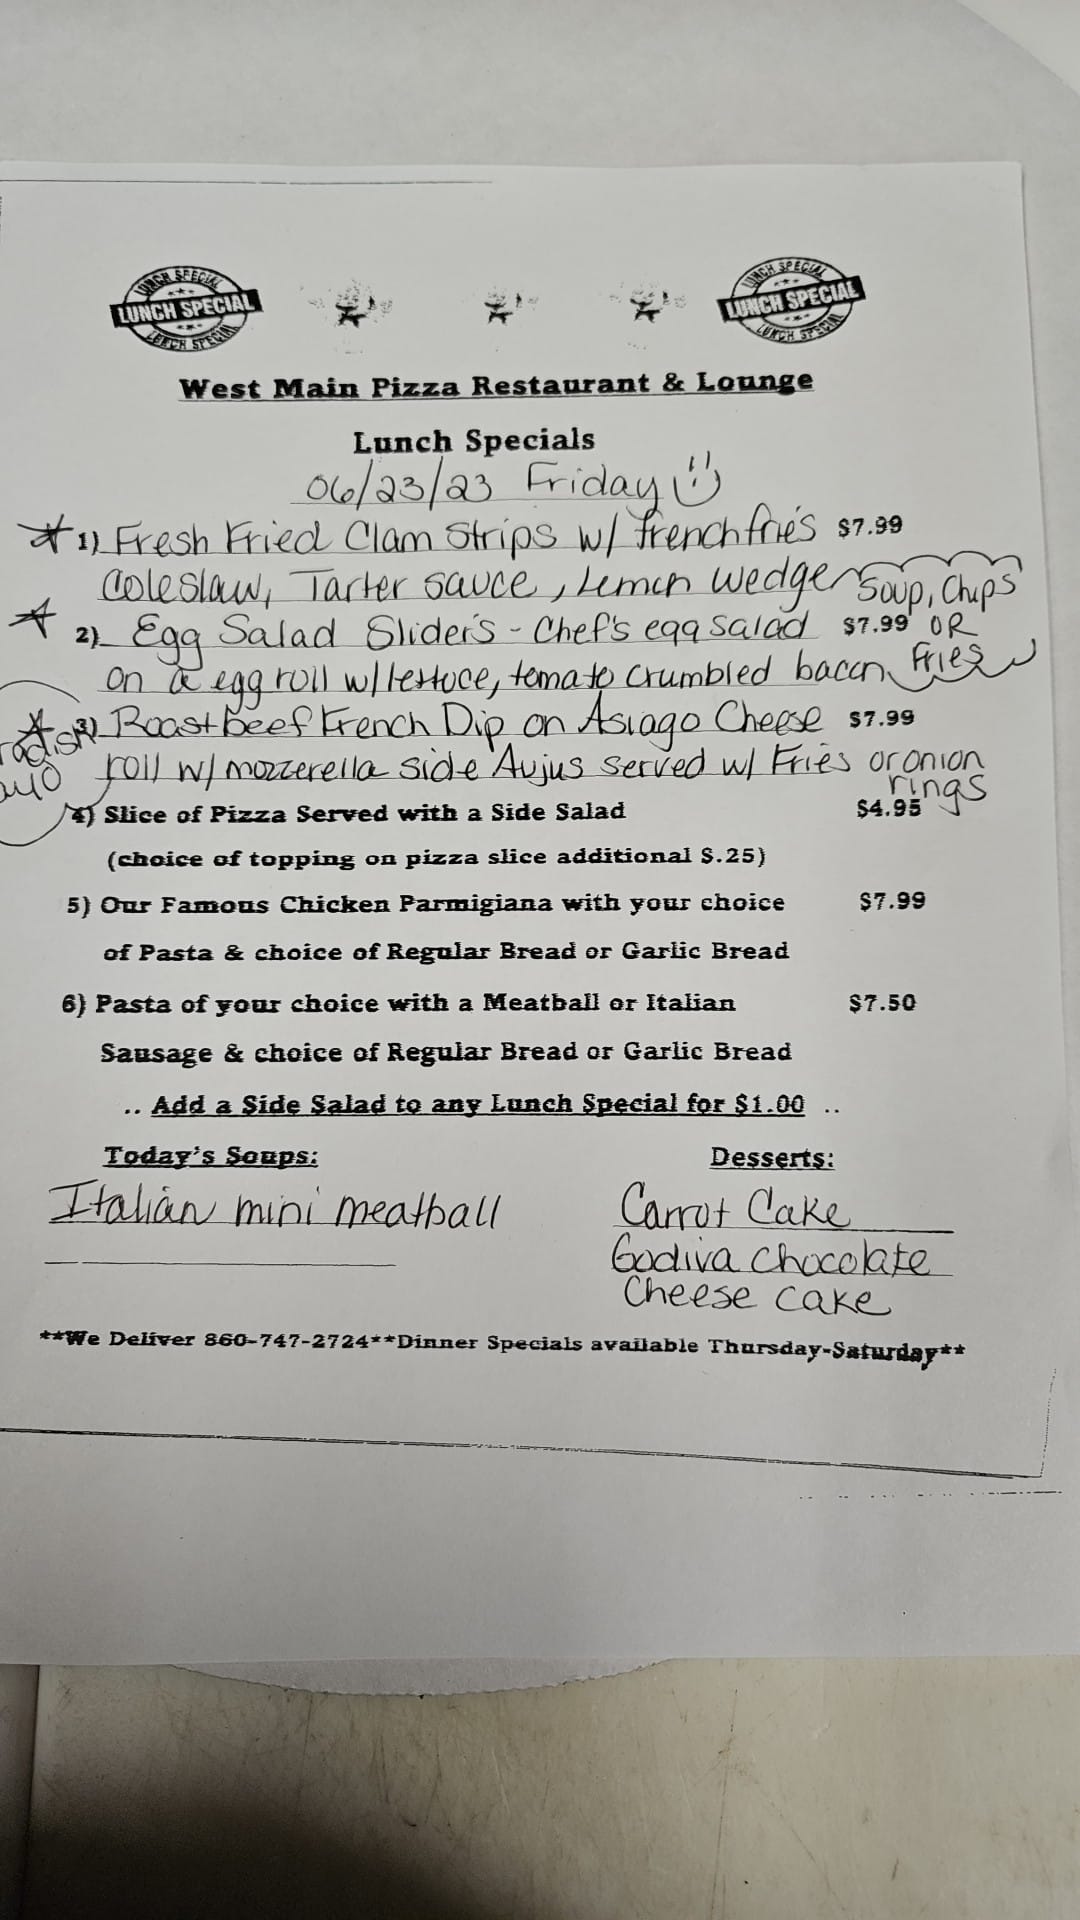 LUNCH SPECIAL
LUNCH SPECIAL
LUNCH SPECIAL
LUNCH SPECIAL
LUNCH SPECIAL
LUNCH SPECIAL
West Main Pizza Restaurant & Lounge
Lunch Specials
06/23/23 Friday
1) Fresh Fried Clam Strips w/ frenchfries $7.99
Coleslaw, Tarter sauce, Lemon wedge
Soup, Chips
2) Egg Salad Sliders - Chef's egg salad $7.99 OR
on a egg roll w/lettuce, tomato crumbled bacon Fries
3) Roastbeef French Dip on Asiago Cheese $7.99
roll w/ mozzerella side Aujus served w/ Fries or onion
rings
radish
ayo
4) Slice of Pizza Served with a Side Salad $4.95
(choice of topping on pizza slice additional $.25)
5) Our Famous Chicken Parmigiana with your choice $7.99
of Pasta & choice of Regular Bread or Garlic Bread
6) Pasta of your choice with a Meatball or Italian $7.50
Sausage & choice of Regular Bread or Garlic Bread
.. Add a Side Salad to any Lunch Special for $1.00 ..
Today's Soups: Desserts:
Italian mini meatball Carrot Cake
Godiva Chocolate
Cheese cake
**We Deliver 860-747-2724**Dinner Specials available Thursday-Saturday**